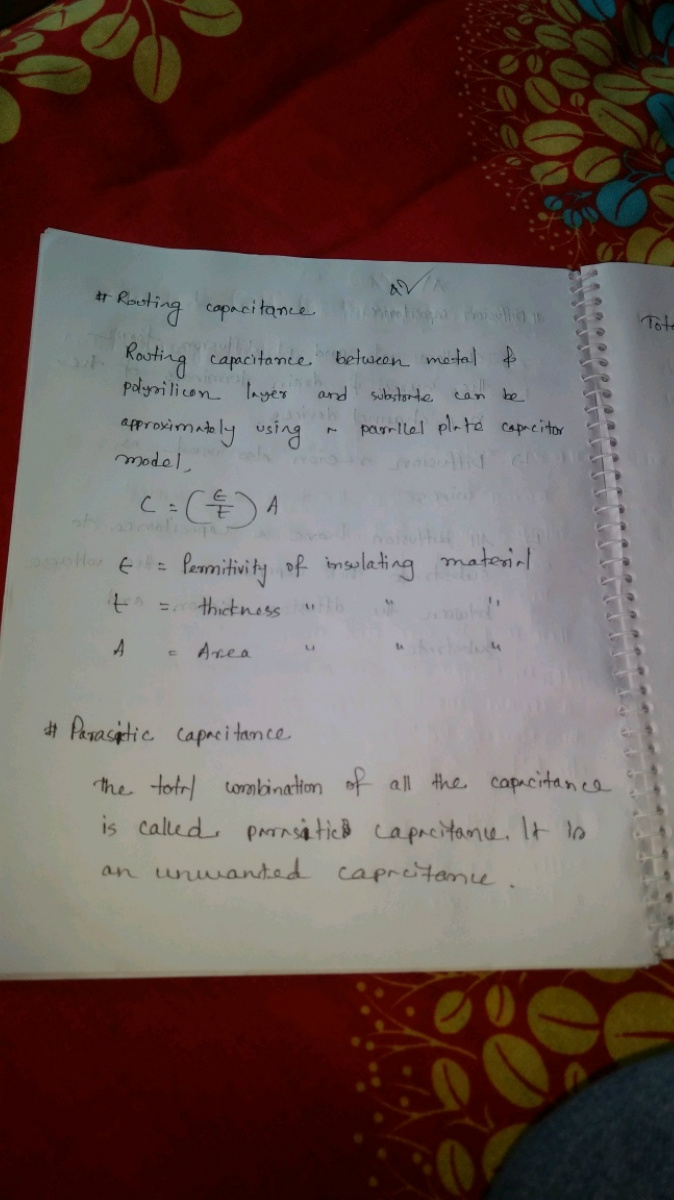 # Routing capacitance
Routing capacitance between metal &
polysilicon layer and substrate can be
approximately using a parallel plate capacitor
model,
C = (ϵ/t) A
ϵ = Permitivity of insulating material
t = thickness " " "
A = Area " " "
# Parasitic capacitance
The total combination of all the capacitance
is called parasitic capacitance. It is
an unwanted capacitance.
Tota